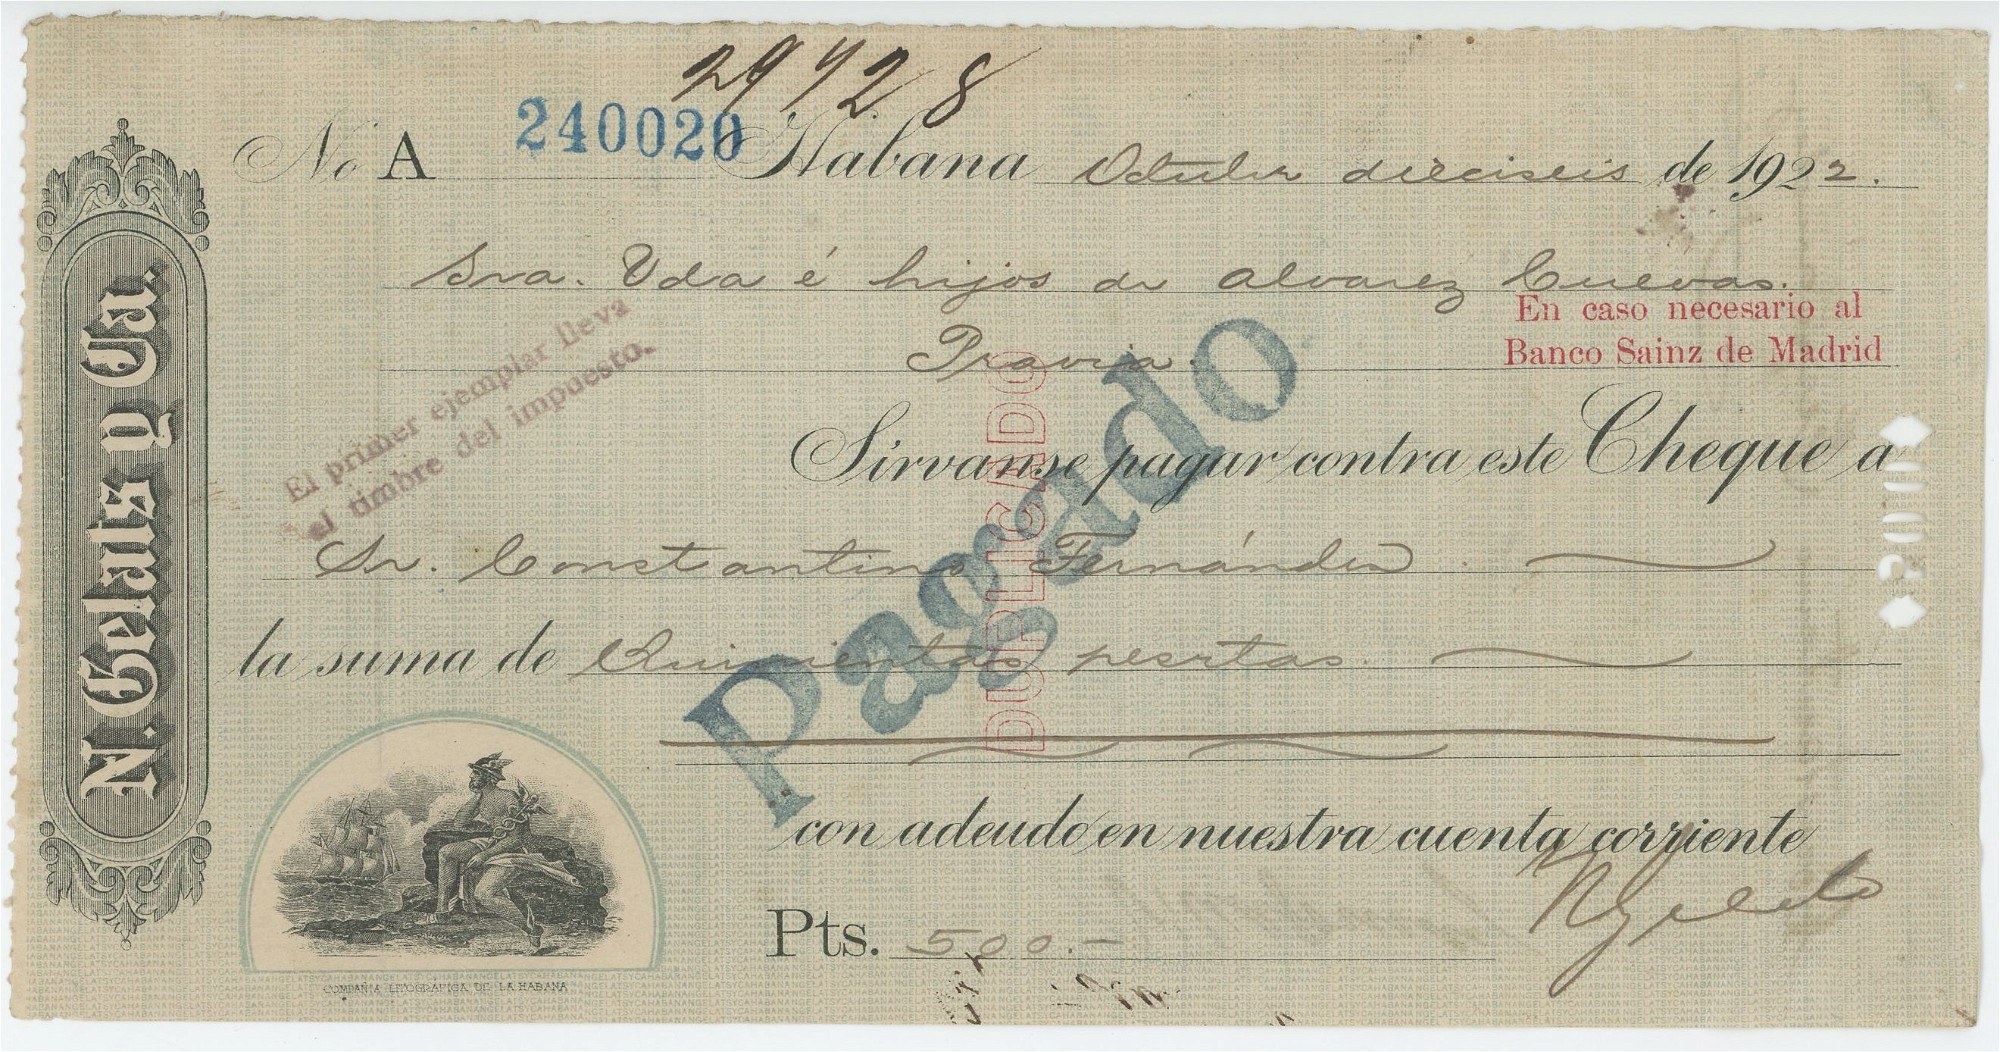 29728
No A 240020 Habana Octubre dieciseis de 1922.
Sra. Vda é hijos de Alvarez Cuévas.
En caso necesario al
Banco Sainz de Madrid
Pravia.
El primer ejemplar lleva
el timbre del impuesto.
Sírvanse pagar contra este Cheque a
Sr. Constantino Fernández
la suma de Quinientas pesetas.
con adeudo en nuestra cuenta corriente
Pts. 500.-
N Gelats
Pagado
DUPLICADO
N. Gelats y Ca.
COMPAÑIA LITOGRAFICA DE LA HABANA